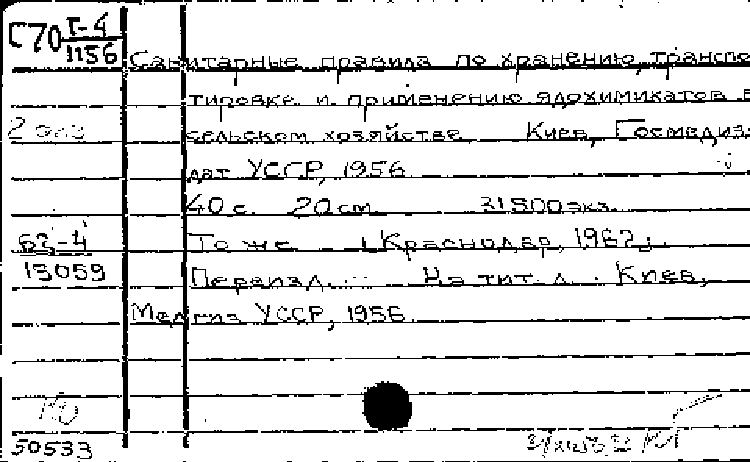 С70 Г-4
1156
Санитарные правила по хранению, транспо
тировке и применению ядохимикатов в
2 экз
сельском хозяйстве Киев, Госмедиз
дат УССР, 1956
40 с. 20 см 31800 экз.
62-4
То же Краснодар, 1962
13059
Переизд. На тит. л. Киев,
Медгиз УССР, 1956
50533